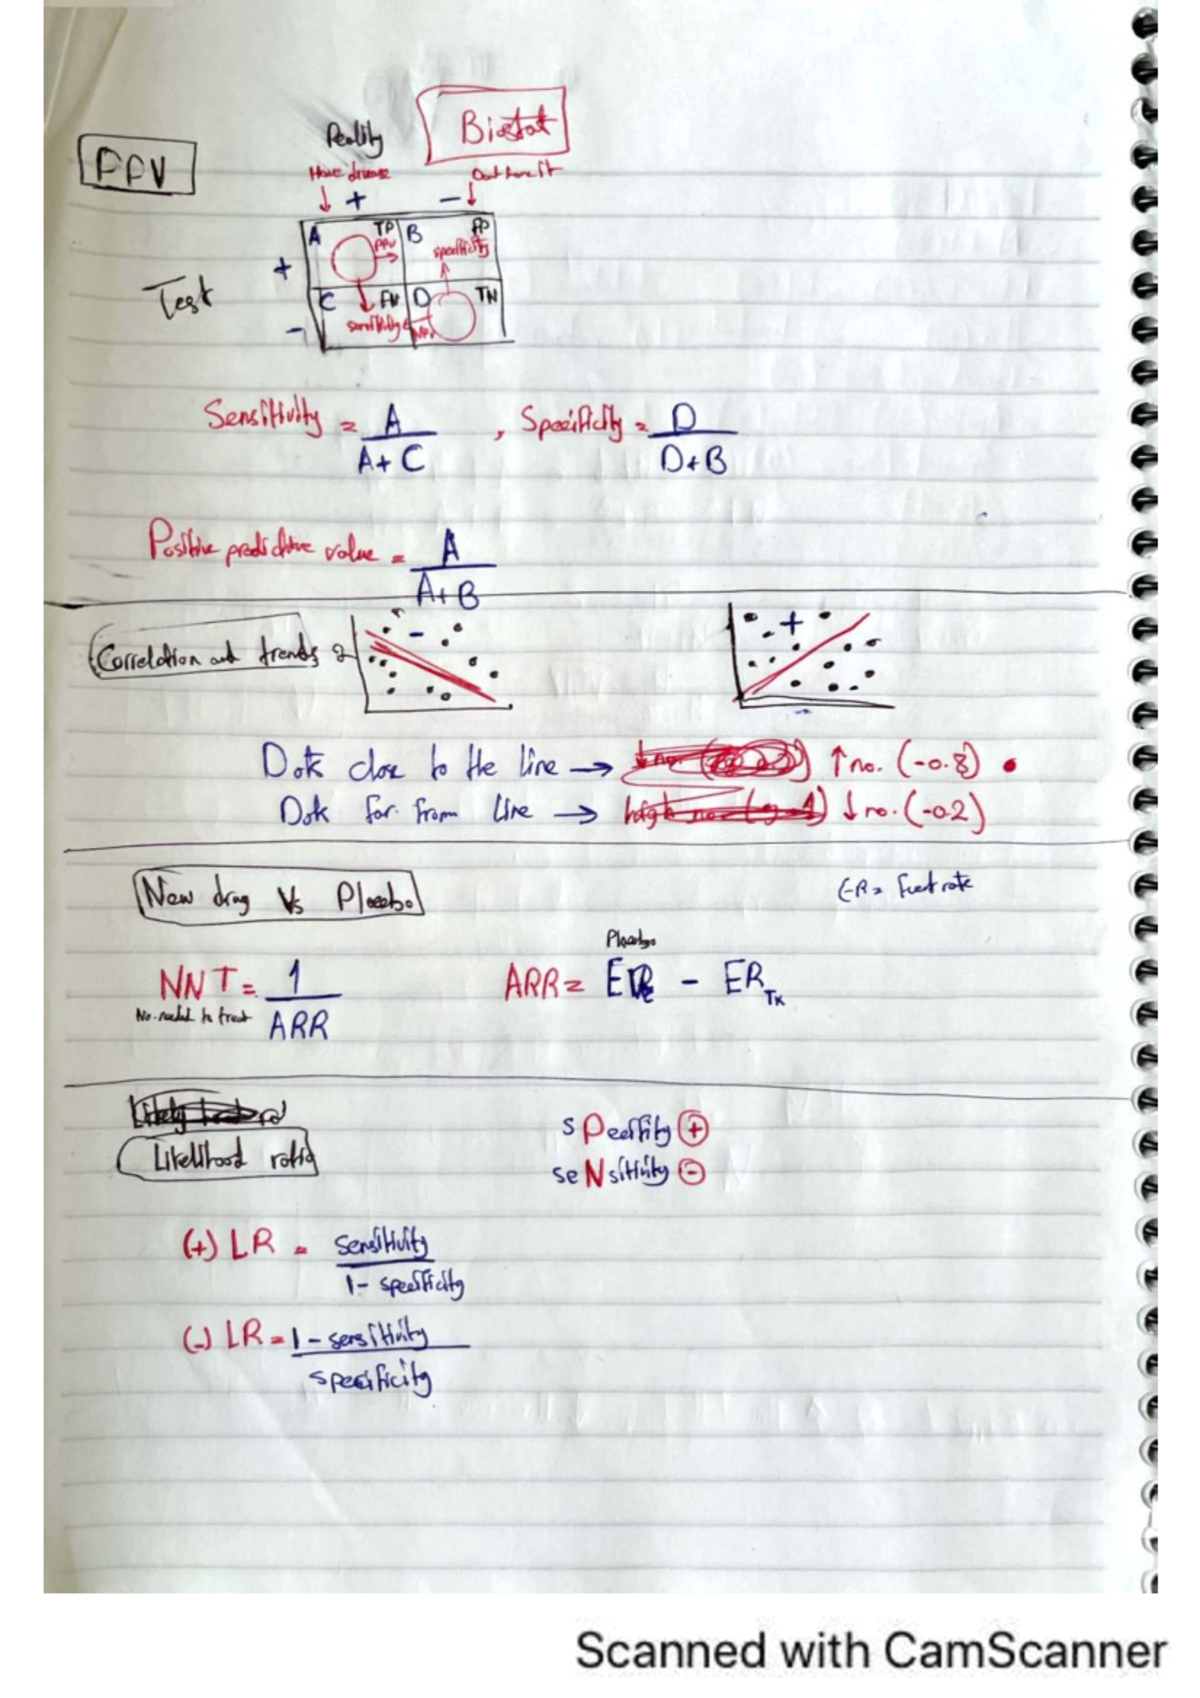 Biostat
PPV
Reality
Have disease
Dont have it
+ -
Test
+
-
A TP B FP
PPV specificity
C FN D TN
sensitivity NPV
Sensitivity = A / A + C , Specificity = D / D + B
Positive predictive value = A / A + B
Correlation and trends
- +
Dots close to the line → ↑ no. (-0.8)
Dots far from line → ↓ no. (-0.2)
New drug Vs Placebo
ER = Event rate
Placebo
NNT = 1 / ARR
No. needed to treat
ARR = ER - ER Tx
Likelihood ratio
sPecificity +
seNsitivity -
(+) LR = sensitivity / 1 - specificity
(-) LR = 1 - sensitivity / specificity
Scanned with CamScanner